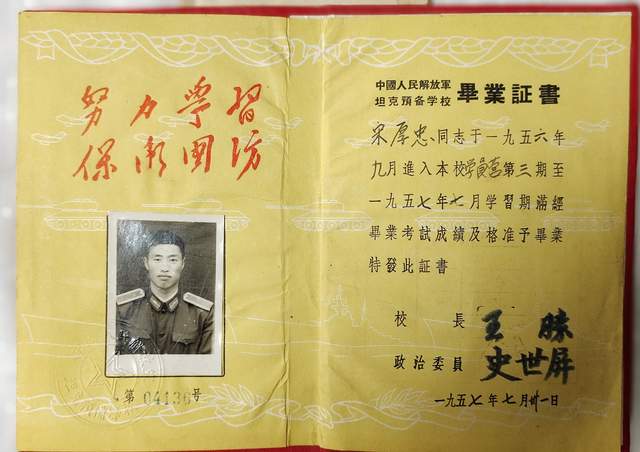 努力學習
保衛國防
第 04136号
中國人民解放軍
坦克預备学校 畢業証書
宋厚忠同志于一九五六年
九月進入本校学員营第三期至
一九五七年七月学習期滿經
畢業考試成績及格准予畢業
特發此証書
校長 王
政治委員 史世屏
一九五七年七月卅一日